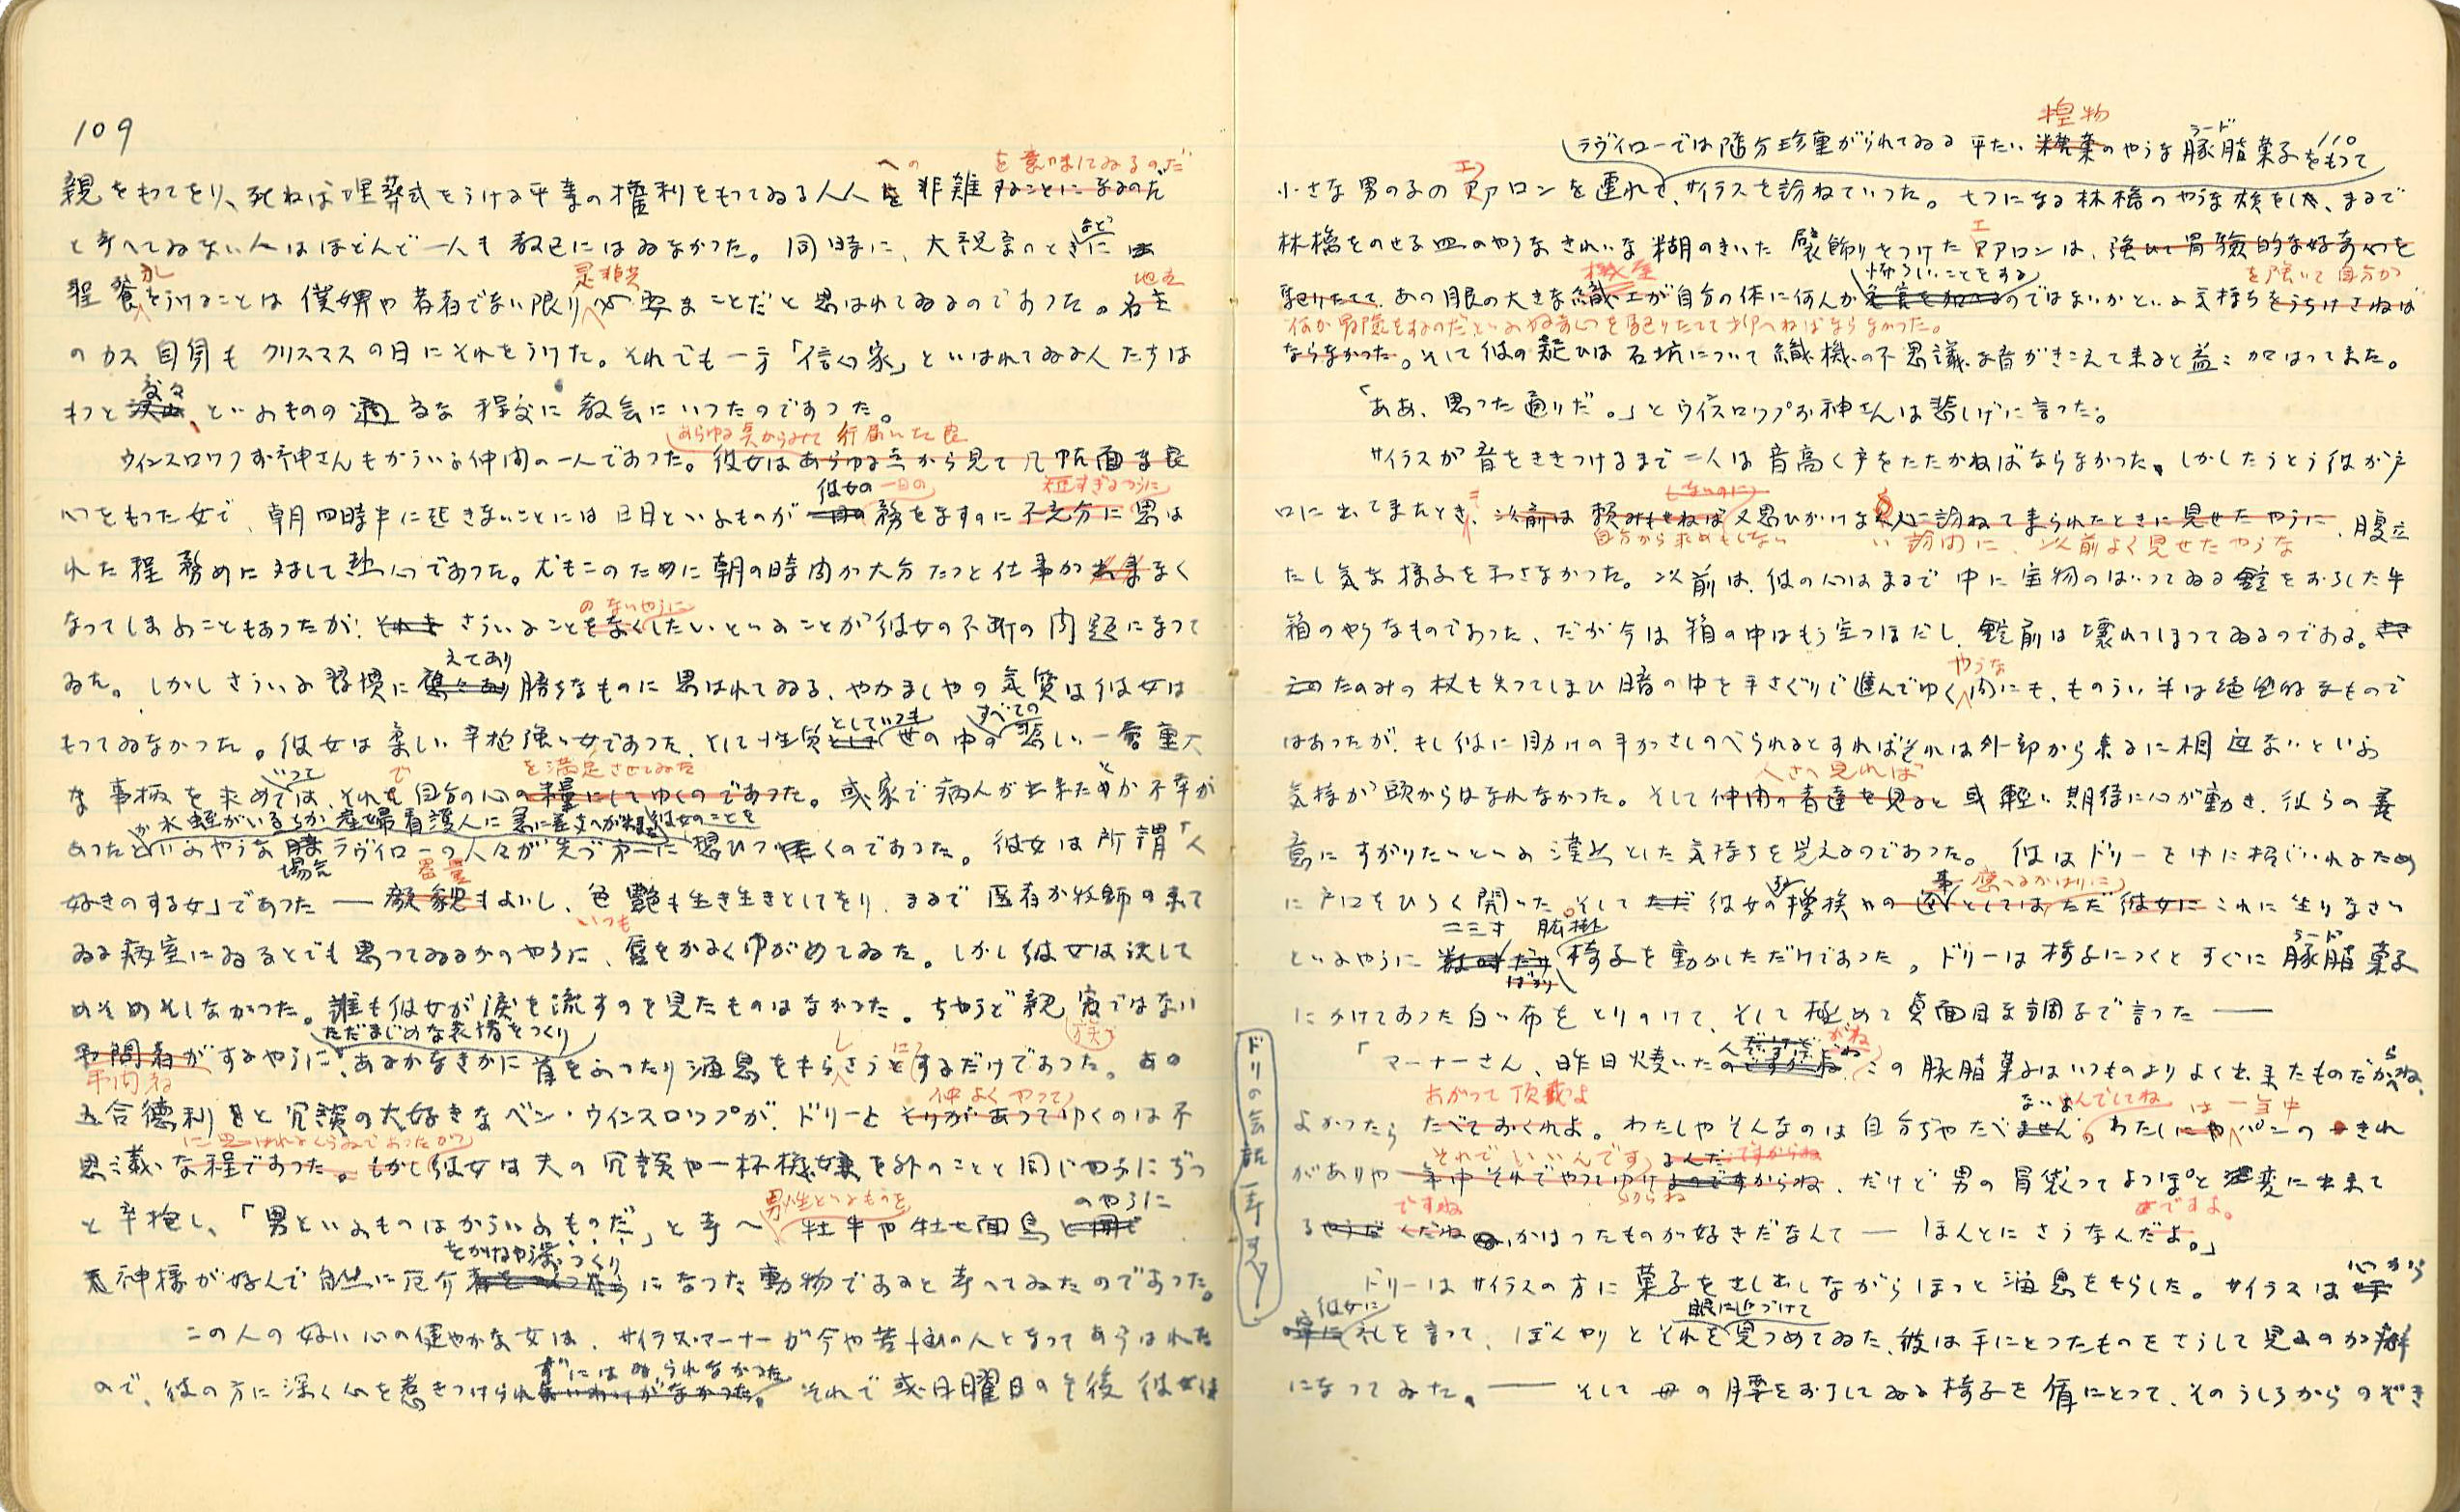 109
への を意味してゐるのだ
親をもつてをり、死ねば埋葬式をうける平等の権利をもつてゐる人人を非難することになるのだ
と考へてゐない人はほどんど一人も教区にはゐなかつた。同時に、大祝祭のときに
など
聖餐をうけることは僕婢や若者でない限り必要なことだと思はれてゐるのであつた。名主
是非共 地主
のカス自身もクリスマスの日にそれをうけた。それでも一方「信心家」といはれてゐる人たちは
もつと といふものの 適 るな程度に教会にいつたのであつた。
あらゆる点からみて行届いた良
ウィンスロウプお神さんもかういふ仲間の一人であつた。彼女はあらゆる点から見て几帳面な良
心をもつた女で、朝四時半に起きないことには一日といふものが 務をますのに不充分に思は
彼女の一日の 短すぎるやうに
れた程務めに対して熱心であつた。尤もこのために朝の時間が大分たつと仕事が なく
なつてしまふこともあつたが、それを さういふことをなくしたいといふことが彼女の不断の問題になつて
のないやうに
ゐた。しかしさういふ習慣に 勝ちなものに思はれてゐる、やかましやの気質は彼女は
えてあり
もつてゐなかつた。彼女は柔しい辛抱強い女であつた、そして性質として世の中の悲しい一番重大
としていつも すべての
な事柄を求めては、それを自分の心の糧にしてゆくのであつた。或家で病人が出来たとか不幸が
いつて で を満足させてゐた
か水蛭がいるとか産婦看護人に急に差支へが 彼女のことを
あつたといふやうな時ラヴィローの人々が先づ第一に想ひつくのであつた。彼女は所謂「人
場合
好きのする女」であつた――顔貌もよいし、色艶も生き生きとしてをり、まるで医者か牧師の来て
容貌
ゐる病室にゐるとでも思つてゐるかのやうに、唇をかるくゆがめてゐた。しかし彼女は決して
いつも
めそめそしなかつた。誰も彼女が涙を流すのを見たものはなかつた。ちやうど親寂ではない
族
ただまじめな表情をつくり
弔問者がするやうに、あるかなきかに首をふつたり溜息をもらさうとするだけであつた。あの
弔問客 し に
五合徳利と冗談の大好きなベン・ウィンスロップが、ドリーとそりがあつてゆくのは不
仲よくやつて
思議な程であつた。しかし彼女は夫の冗談や一杯機嫌を外のことと同じやうにぢつ
に思はれるくらゐであつたが
と辛抱し、「男といふものはかういふものだ」と考へ 牡牛や牡七面鳥と同じ
男性といふものを のやうに
神様が好んで自然に厄介 になつた動物であると考へてゐたのであつた。
をかけるやうにつくり
この人の好い心の健やかな女は、サイラス・マーナーが今や苦悩の人となつてあらはれた
ので、彼の方に深く心を惹きつけられ ないわけがなかつた。それで或日曜日の午後彼女は
ずにはゐられなかつた
110
糧物
ラヴィローでは随分珍重がられてゐる平たい のやうな豚脂菓子をもつて
ラード
小さな男の子のアアロンを連れて、サイラスを訪ねていつた。七つになる林檎のやうな頬をした、まるで
エ
林檎をのせる皿のやうなきれいな糊のきいた襞飾りをつけたアアロンは、強ひて冒険的な好奇心を
エ
駆りたてて、あの眼の大きな織工が自分の体に何んか危害を加へるのではないかといふ気持ちをうちけさねば
機屋 怖ろしいことをする を強いて自分が
何か冒険をするのだといふ好奇心を駆りたてて抑へねばならなかつた。
ならなかつた。そして彼の疑ひは石坑について織機の不思議な音がきこえて来ると益々加はつてきた。
「ああ、思つた通りだ。」とウィンスロップお神さんは悲しげに言つた。
サイラスが音をききつけるまで二人は音高く戸をたたかねばならなかつた。しかしたうとう彼が戸
口に出てきたとき、以前は頼みもせねば又思ひかけない人に訪ねて来られたときに見せたやうに、腹立
しないのに
自分から求めもしない い訪問に、以前よく見せたやうな
たし気な様子を示さなかつた。以前は、彼の心はまるで中に宝物のはいつてゐる錠をおろした手
箱のやうなものであつた、だが今は箱の中はもう空つぽだし、錠前は壊れてしまつてゐるのである。
そのたのみの杖も失つてしまひ暗の中を手さぐりで進んでゆく内にも、ものうい半は絶望的なもので
やうな
はあつたが、もし彼に助けの手がさしのべられるとすればそれは外部から来るに相違ないといふ
気持が頭からはなれなかつた。そして仲間の者達を見ると或軽い期待に心が動き、彼らの善
人さへ見れば
意にすがりたいといふ漠然とした気持ちを覚えるのであつた。彼はドリーを中に招じいれるため
に戸口をひろく開いた。そしてただ彼女の挨拶への返事としてはただ彼女にこれに坐りなさい
に応へるかはりに
といふやうに 椅子を動かしただけであつた。ドリーは椅子につくとすぐに豚脂菓子
二三寸 肱掛 ばかり ラード
にかけてあつた白い布をとりのけて、そして極めて真面目な調子で言つた――
「マーナーさん、昨日焼いたのですがね、この豚脂菓子はいつものよりよく出来たものだがね、
よかつたらたべておくれよ。わたしやそんなのは自分ぢやたべません。わたしにやパンのきれ
おがつて頂戴よ ないよ んでしてね は一年中
がありや年中それでやつてゆけるのですからね、だけど男の胃袋つてよつぽど変に出来て
それでいいんです
る くだね、かはつたものが好きだなんて――ほんとにさうなんだよ。」
ですね ですよ。
ドリーはサイラスの方に菓子をさし出しながらほつと溜息をもらした。サイラスは
心から
礼を言つて、ぼんやりとそれを見つめてゐた、彼は手にとつたものをさうして見るのが癖
彼女に 眼に近づけて
になつてゐた。――そして母の腰をおろしてゐる椅子を盾にとつて、そのうしろからのぞき
ドリの会話一考すべし